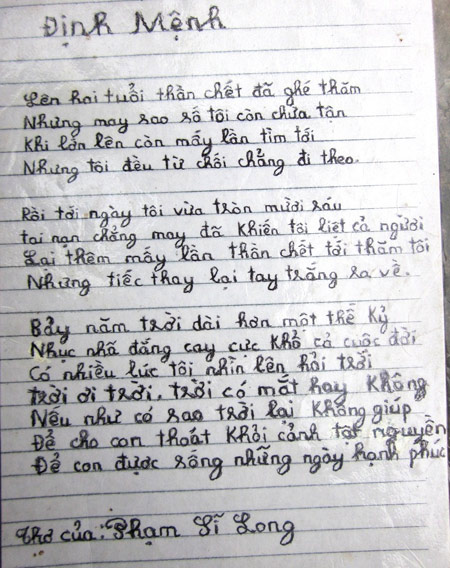 Định Mệnh
Lên hai tuổi thần chết đã ghé thăm
Nhưng may sao số tôi còn chưa tận
Khi lớn lên còn mấy lần tìm tới
Nhưng tôi đều từ chối chẳng đi theo.
Rồi tới ngày tôi vừa tròn mười sáu
tai nạn chẳng may đã khiến tôi liệt cả người
Lại thêm mấy lần thần chết tới thăm tôi
Nhưng tiếc thay lại tay trắng ra về.
Bảy năm trời dài hơn một thế kỷ
Nhục nhã đắng cay cực khổ cả cuộc đời
Có nhiều lúc tôi nhìn lên hỏi trời
trời ơi trời, trời có mắt hay không
Nếu như có sao trời lại không giúp
Để cho con thoát khỏi cảnh tật nguyền
Để con được sống những ngày hạnh phúc
Thơ của: Phạm Sĩ Long